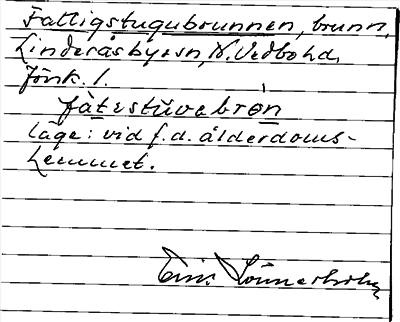 Fattigstugubrunnen, brunn,
Linderåsbysn, N. Vedbohd,
Jönk. l.
fàtestùvebrøn
läge: vid f.d. ålderdoms-
hemmet.